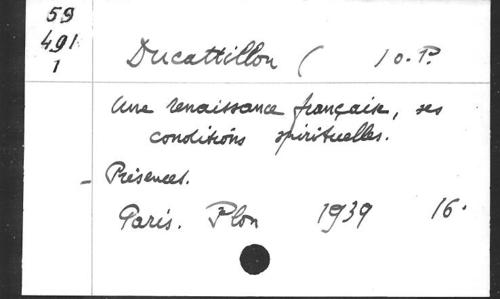 59
491
1
Ducattillon ( ) O.P.
Une renaissance française, ses
conditions spirituelles.
- Présences.
Paris. Plon 1939 16°